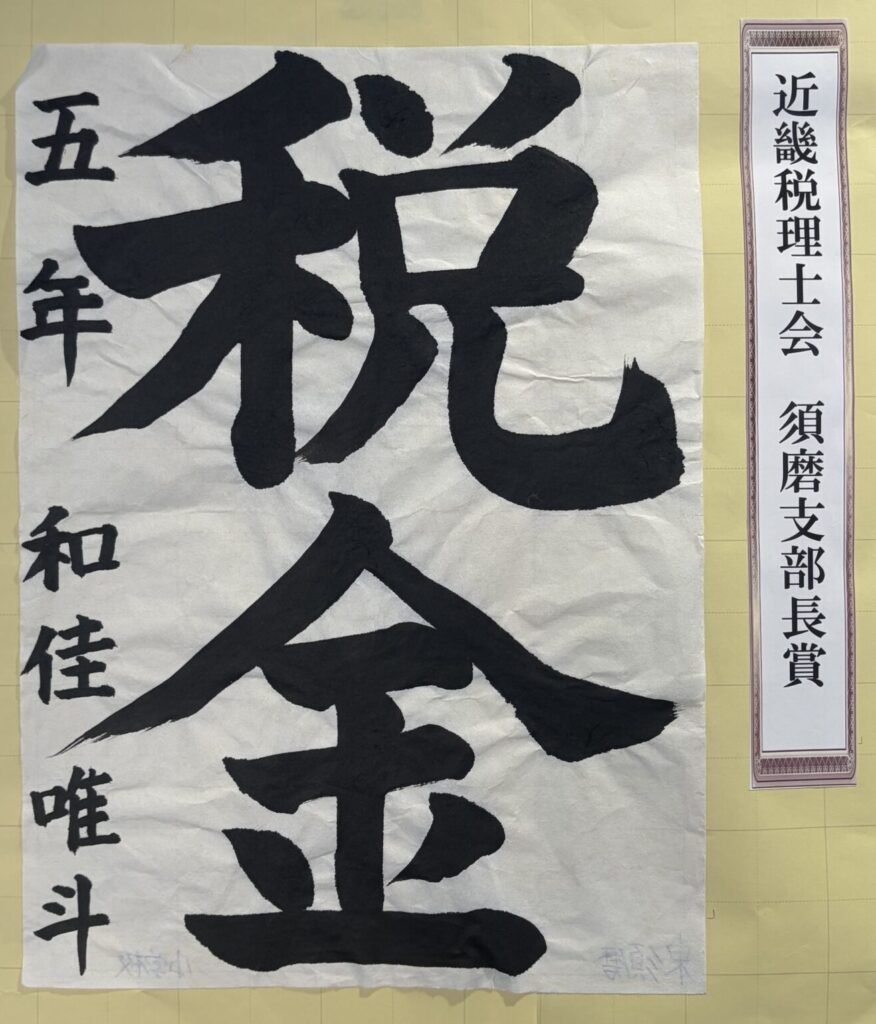 近畿税理士会　須磨支部長賞
税金
五年　和佳唯斗